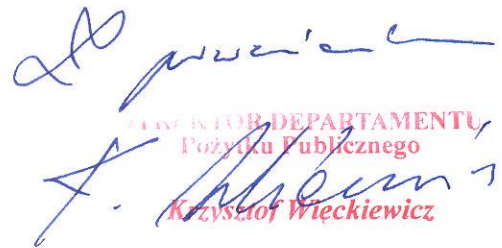 Z poważaniem
DYREKTOR DEPARTAMENTU
Pożytku Publicznego
Krzysztof Więckiewicz